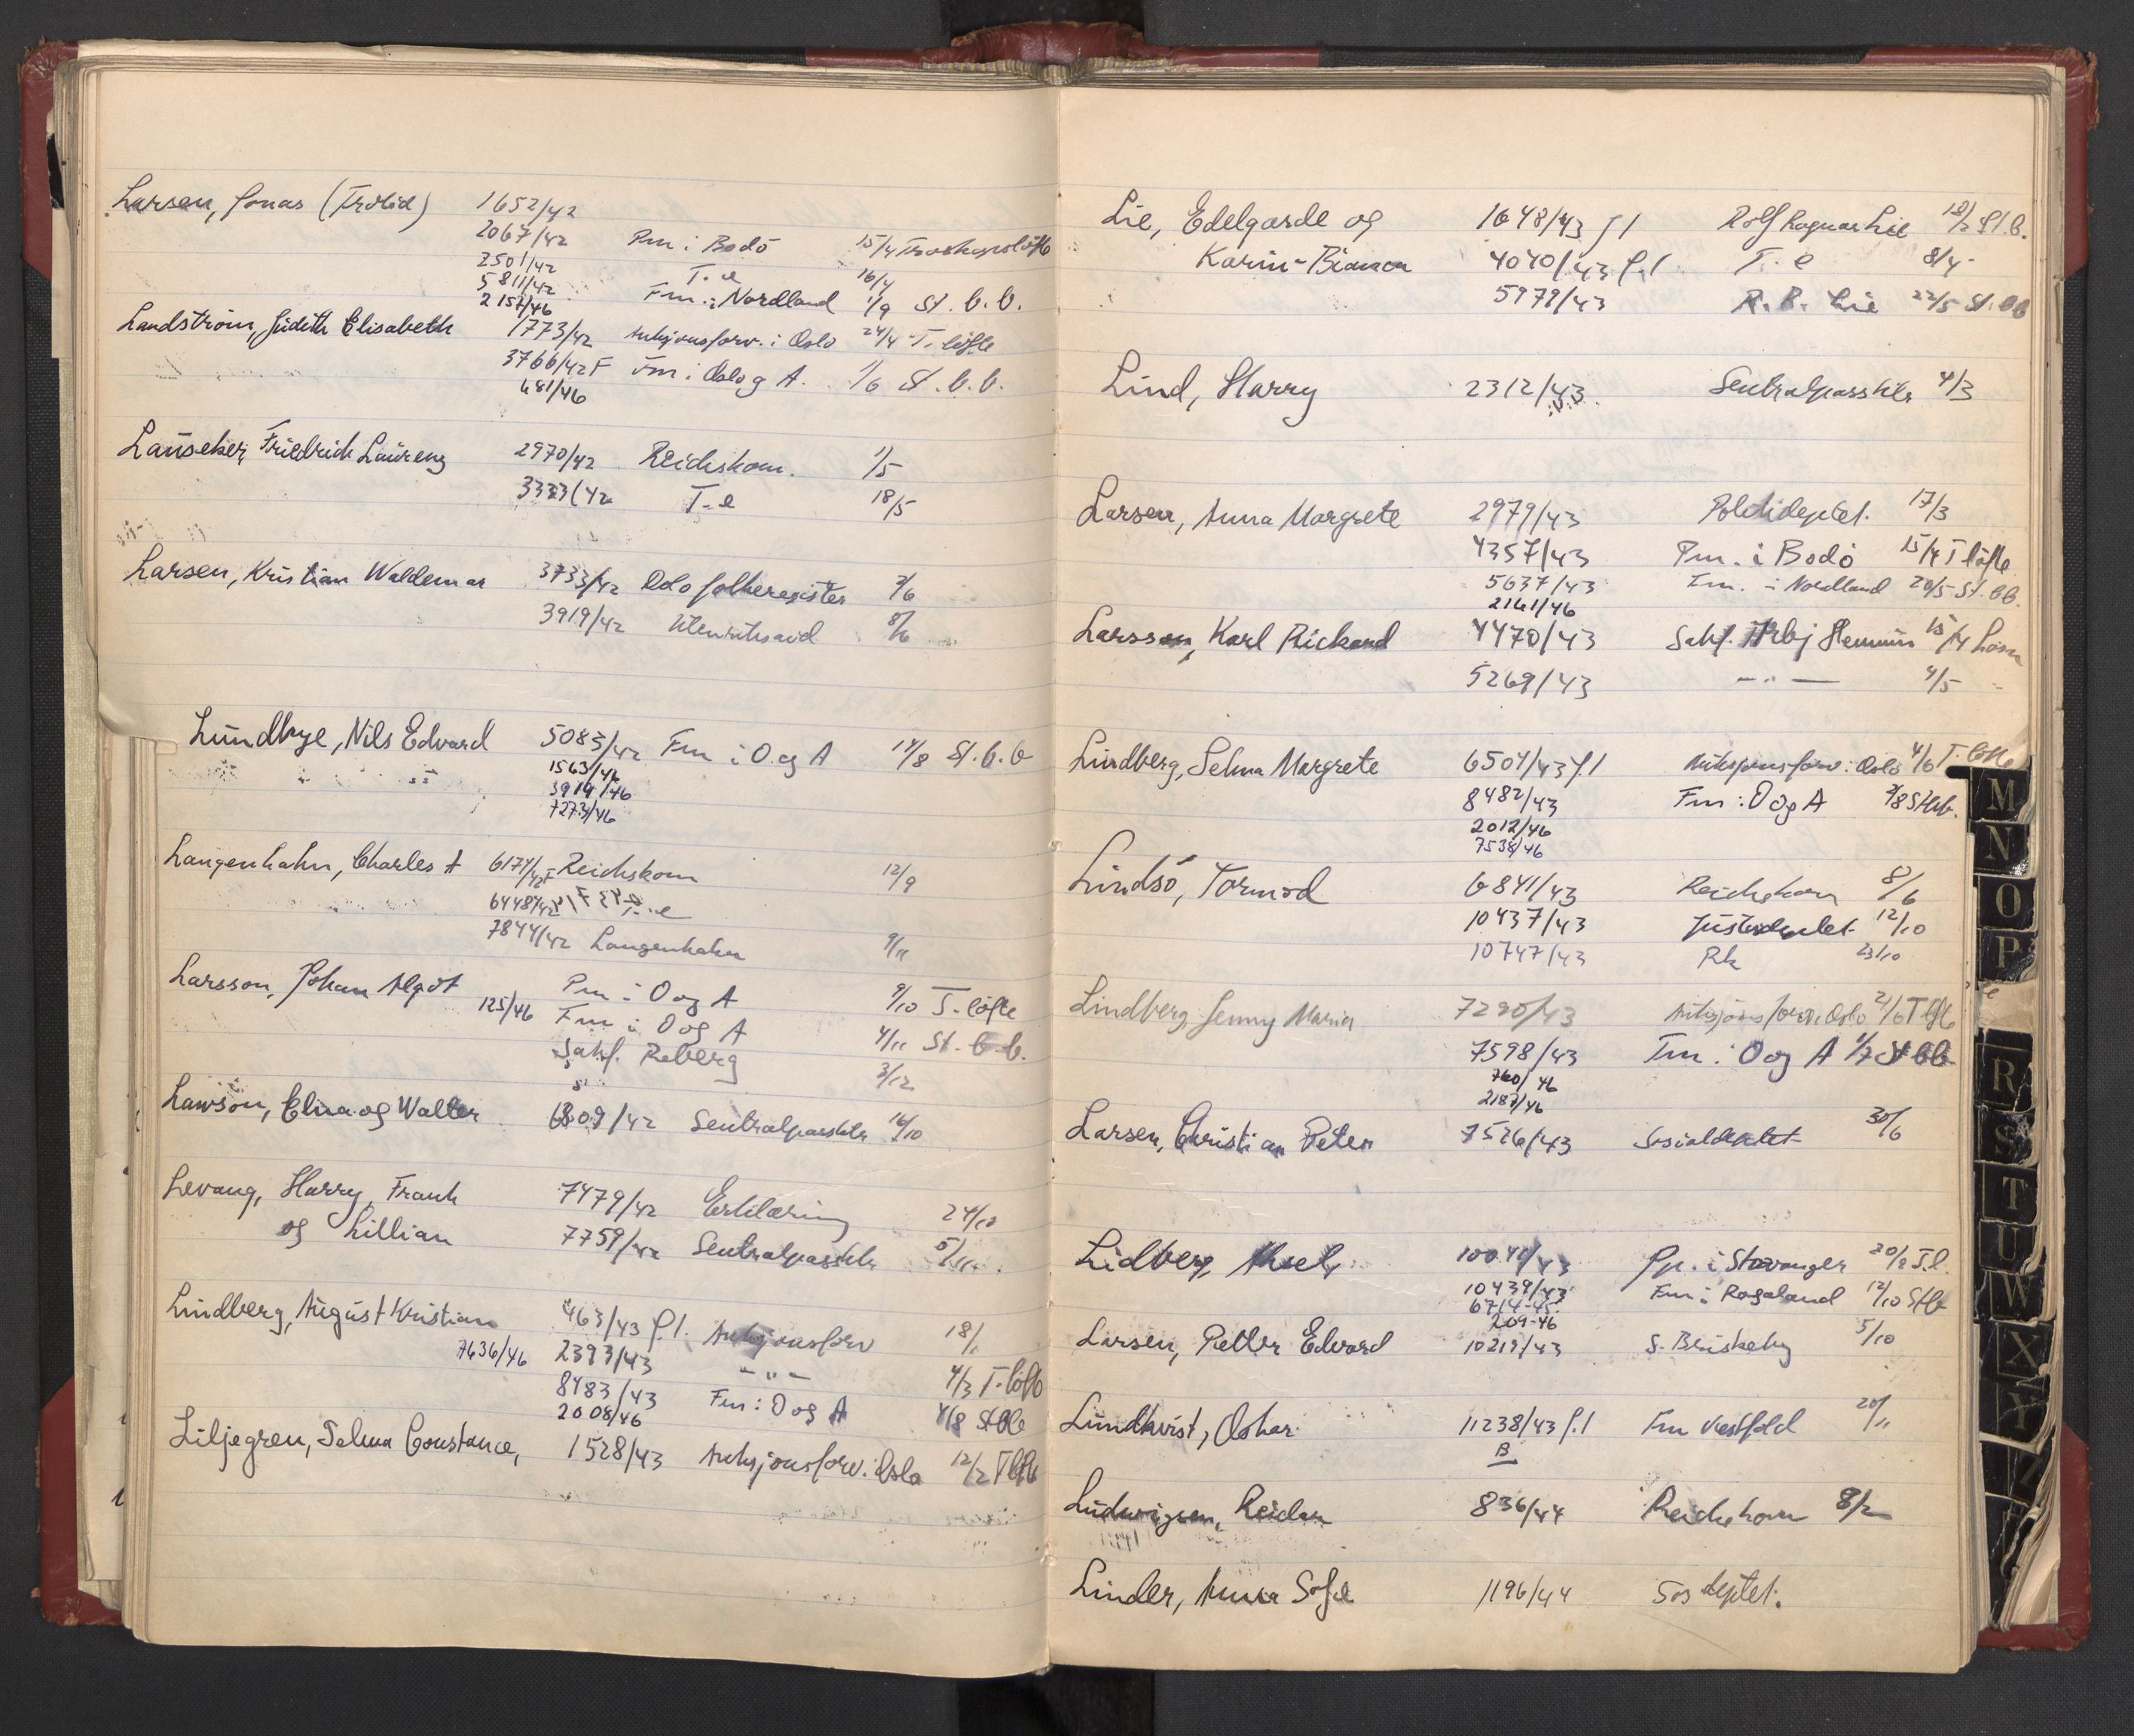 Larsen, Jonas (Trolid) 1652/42
2067/42 Pm i Bodö 15/4 Troskapslöfte
2501/42 T.e 16/4
5811/42 Fm. i Nordland 1/9 St. b. b.
2157/46
Landström, Judith Elisabeth 1773/42 Auksjonsforv. i Oslo 24/4 T. löfte
3766/42 F Fm i Oslo og A. 1/6 St. b. b.
681/46
Lauseker, Friedrich Laurenz 2970/42 Reichskom. 1/5
3333/42 T-e 18/5
Larsen, Kristian Waldemar 3733/42 Oslo folkeregister 2/6
3919/42 8/6
Lundbye, Nils Edvard 5083/42 Fm i O. og A 14/8 St. b. b
1563/46
3919/46
7273/46
Langenhahn, Charles A 6174/42F Reichskom 12/9
6448/42 T.-e
7844/42 Langenhahn 9/11
Larsson, Johan Algot Pm i O og A 9/10 T-löfte
125/46 Fm i O og A 4/11 St. b. b.
Sakf. Reberg 3/12
Lawson, Elna og Walter 6809/42 Sentralpassktr 16/10
Levang, Harry, Frank 7479/42 Erklæring 24/10
og Lillian 7759/42 Sentralpassktr 5/11
Lindberg, August Kristian 463/43 f.l. Auksjonsforv 18/1
7636/46 2393/43 - " - 4/3 T-löfte
8483/43 Fm i O og A 4/8 St bb
2008/46
Liljegren, Selma Constance, 1528/43 Auksjonsforv. Oslo 12/2 T löfte
Lie, Edelgarde og 1648/43 fl Rolf Ragnar Lie 18/2 St. b.
Karin-Bianca 4040/43 f.l T-e 8/4
5979/43 R. B. Lie 22/5 St. bb
Lind, Harry 2312/43 Sentralpassktr 4/3
Larsen, Anna Margrete 2979/43 Politideptet. 17/3
4357/43 Pm. i Bodö 15/4 T löfte
5637/43 Fm. i Nordland 20/5 St. bb.
2161/46
Larsson, Karl Rickard 4470/43 Sakf. 15/4
5269/43 - " - 4/5
Lindberg, Selma Margrete 6504/43 f.l Auksjonsforv. i Oslo 4/6 T. löfte
8482/43 Fm i O og A 4/8 St bb.
2012/46
7538/46
Lindsö, Tormod 6841/43 Reichskom 8/6
10437/43 Justisdeptet 12/10
10747/43 Rk 23/10
Lindberg, Jenny Maria 7290/43 Auksjonsforv. Oslo 21/6 T löfte
7598/43 Fm i O og A 1/7 St bb
760/46
2187/46
Larsen, Christian Peter 7526/43 Sosialdeptet 30/6
Lidberg, Aksel, 10040/43 Pp. i Stavanger 20/2 T.l.
10439/43 Fm i Rogaland 12/10 St b
6714-45
209-46
Larsen, Petter Edvard 10219/43 S. Briskeby 5/10
Lundkvist, Oskar 11238/43 f.l Fm Vestfold 20/11
B
Ludwigsen, Reidar 836/44 Reichskom 8/2
Linder, Anna Sofie 1196/44 Sos deptet.
M
N
O
P
R
S
T
U
W
X
Y
Z